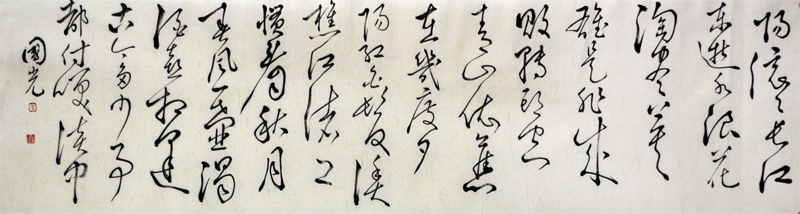 滚〻长江
东逝水浪花
淘尽英
雄是非成
败转头空
青山依舊
在幾度夕
阳红白髮渔
樵江渚上
慣看秋月
春风一壺濁
酒喜相逢
古今多少事
都付笑谈中
國光